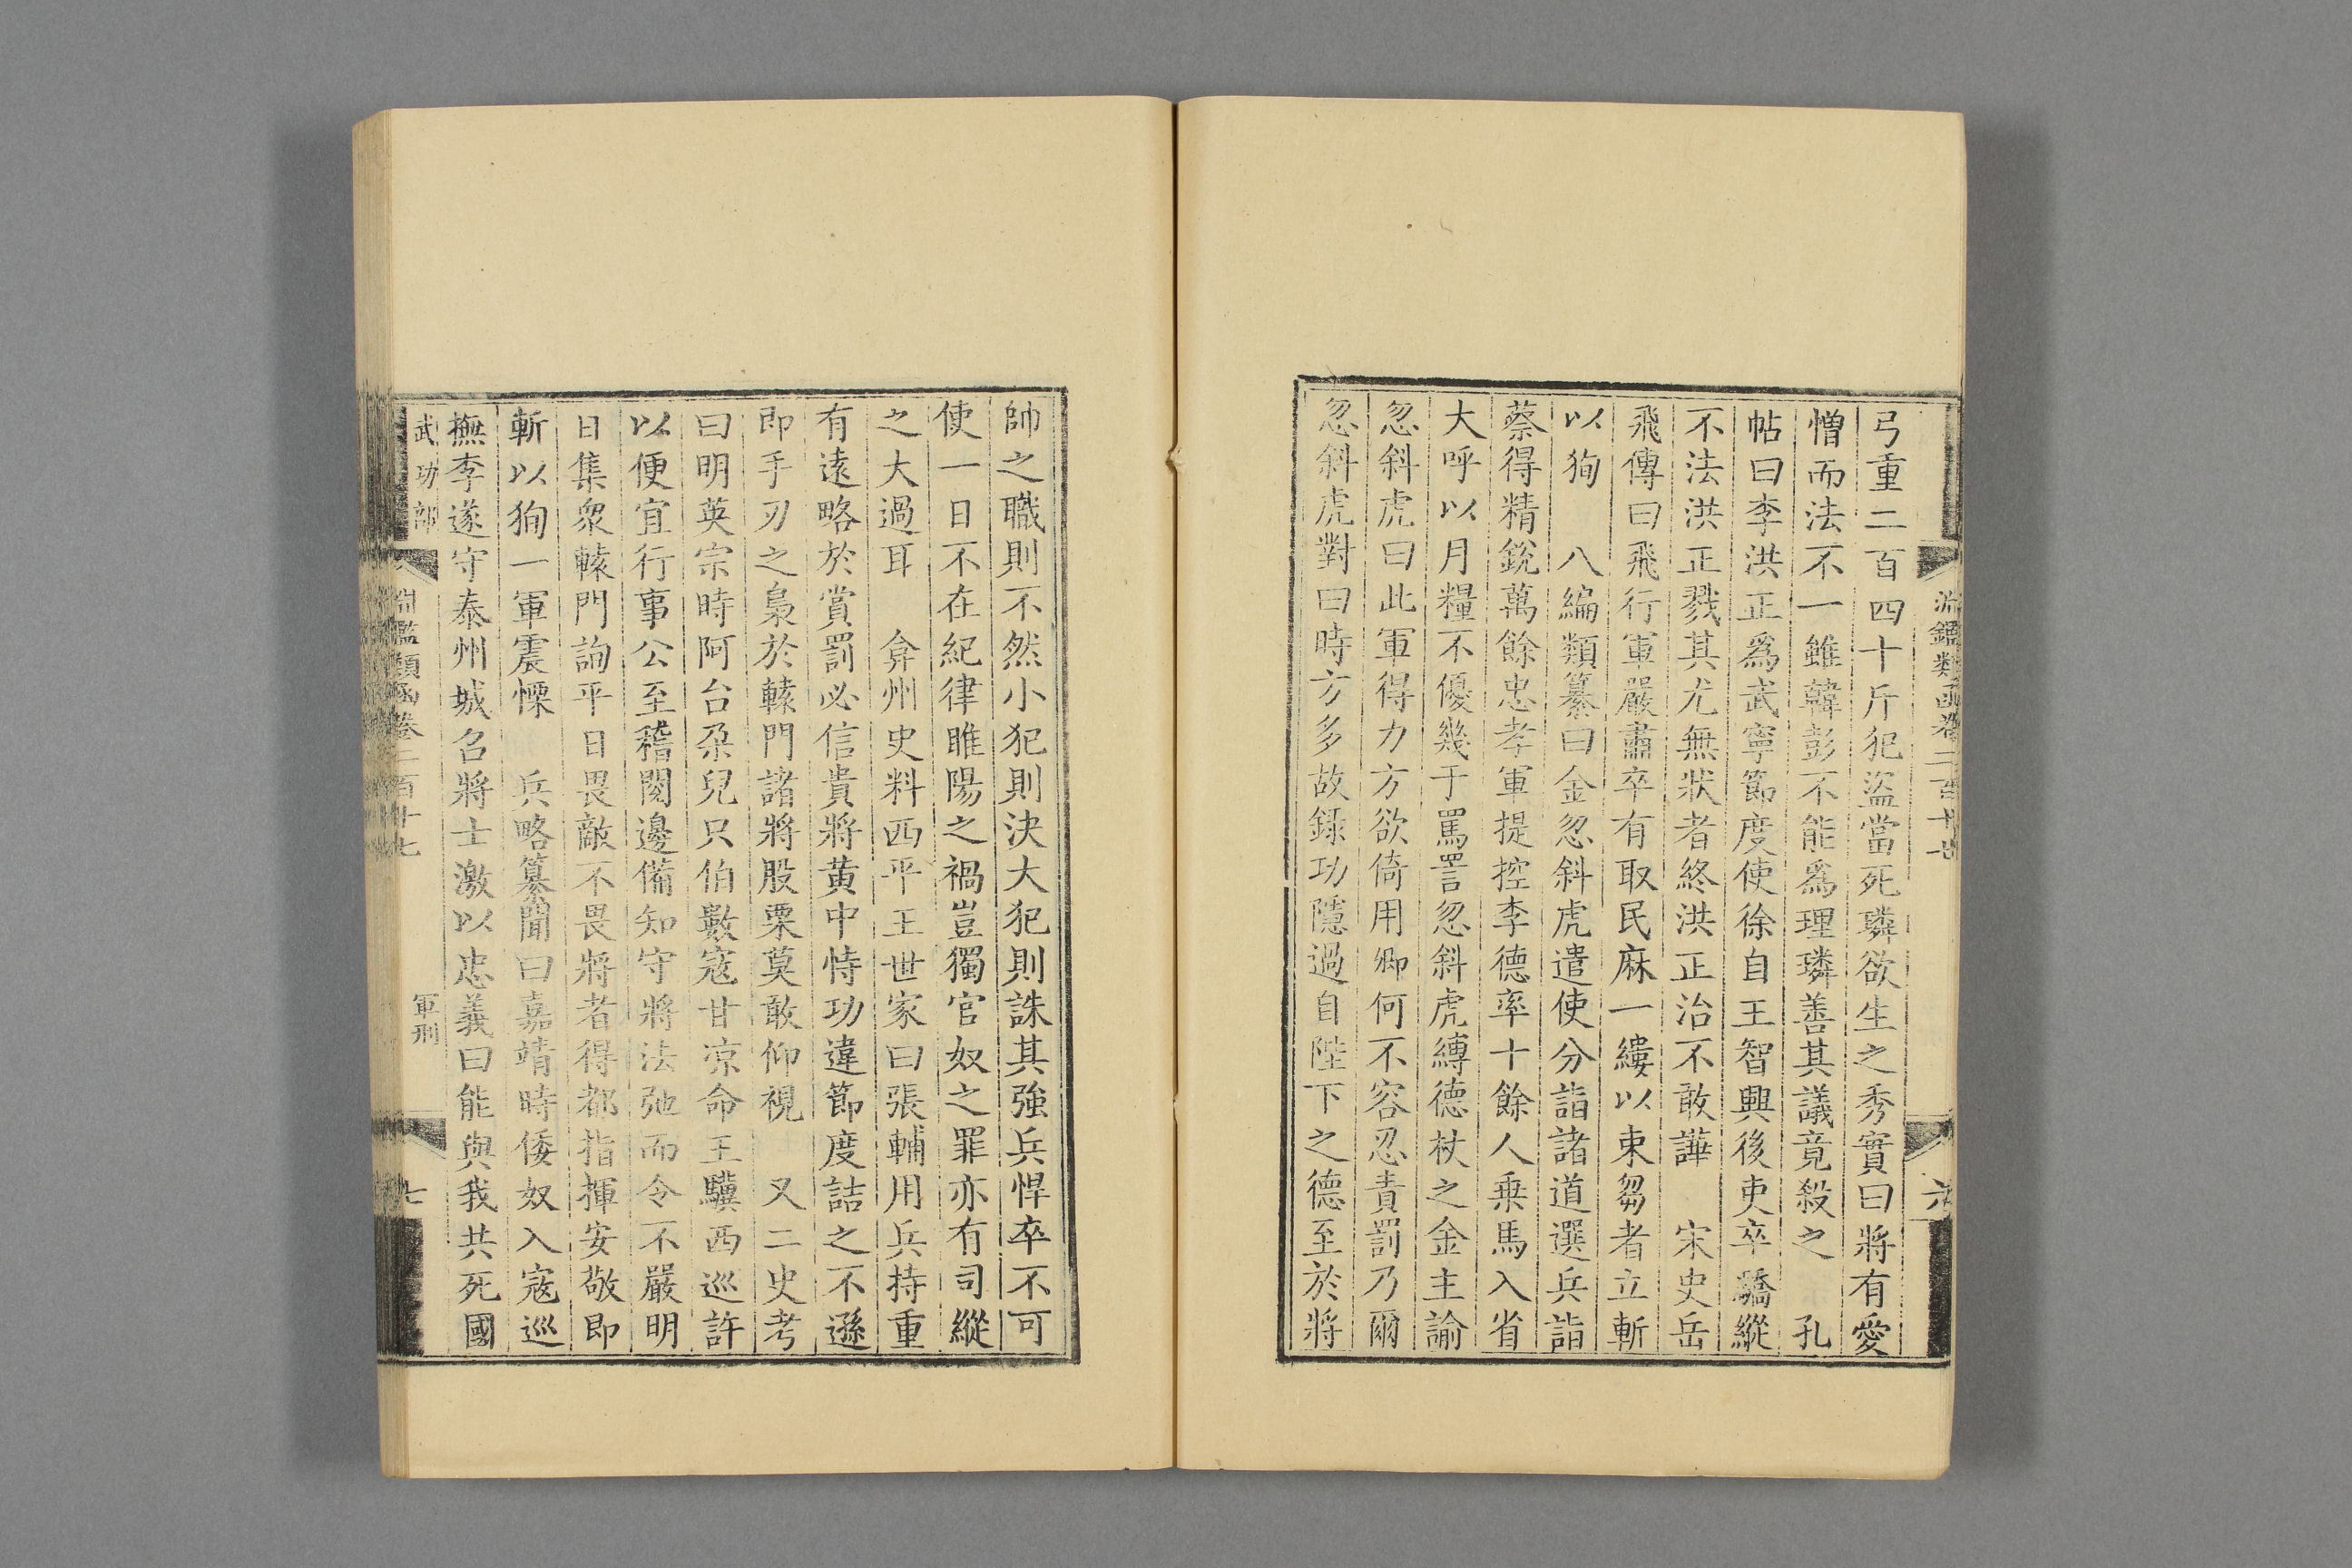 淵鑑類函卷二百十七
六
弓重二百四十斤犯盜當死璘欲生之秀實曰將有愛
憎而法不一雖韓彭不能爲理璘善其議竟殺之　孔
帖曰李洪正爲武寧節度使徐自王智興後吏卒驕縱
不法洪正戮其尤無狀者終洪正治不敢譁　宋史岳
飛傳曰飛行軍嚴肅卒有取民麻一縷以束芻者立斬
以狥　八編類纂曰金忽斜虎遣使分詣諸道選兵詣
蔡得精銳萬餘忠孝軍提控李德率十餘人乗馬入省
大呼以月糧不優幾于罵詈忽斜虎縛德杖之金主諭
忽斜虎曰此軍得力方欲倚用卿何不容忍責罰乃爾
忽斜虎對曰時方多故錄功隱過自陛下之德至於將
帥之職則不然小犯則決大犯則誅其強兵悍卒不可
使一日不在紀律睢陽之禍豈獨官奴之罪亦有司縱
之大過耳　弇州史料西平王世家曰張輔用兵持重
有遠略於賞罰必信貴將黄中恃功違節度詰之不遜
即手刃之梟於轅門諸將股栗莫敢仰視　又二史考
曰明英宗時阿台朶兒只伯數寇甘凉命王驥西巡許
以便宜行事公至稽閱邊備知守將法弛而令不嚴明
日集衆轅門詢平日畏敵不畏將者得都指揮安敬即
斬以狥一軍震慄　兵略纂聞曰嘉靖時倭奴入寇巡
撫李遂守泰州城召將士激以忠義曰能與我共死國
武功部
淵鑑類函卷二百十七
軍刑
七